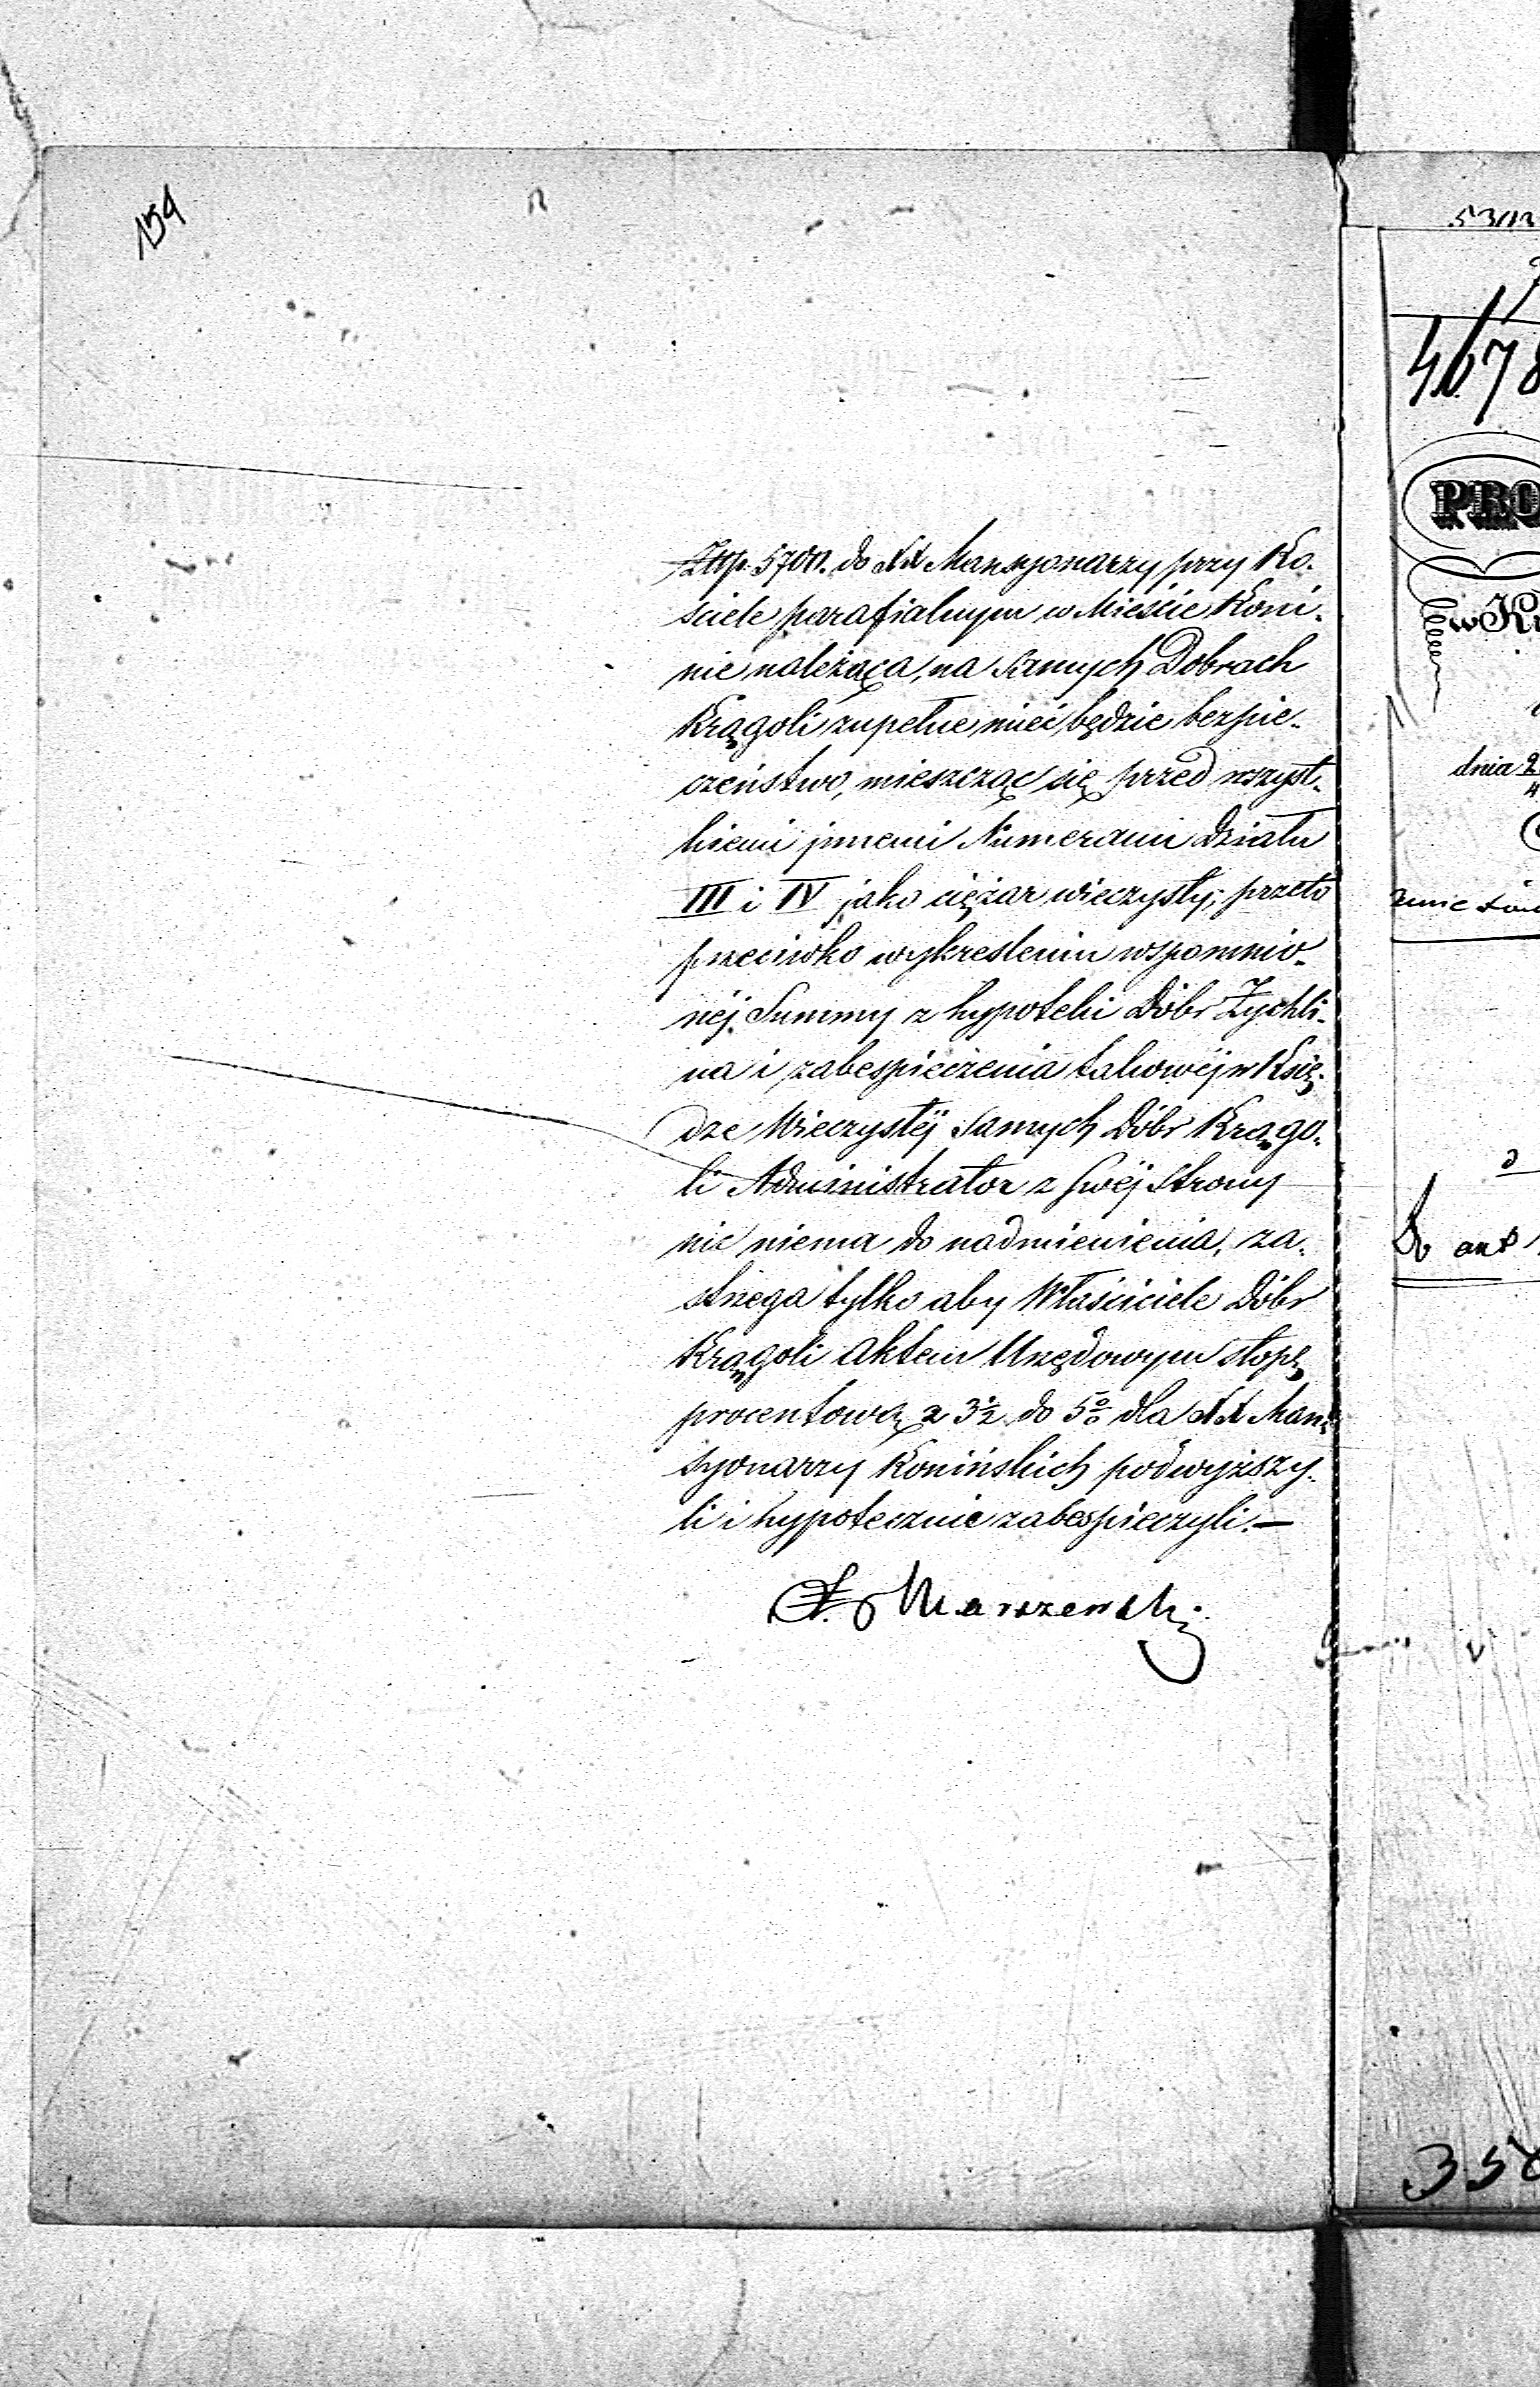 154
Złtp. 5700. do XX Mansyonarzy przy Ko-
ściele parafialnym w Mieście Koni-
nie należąca, na samych Dobrach
Krągoli zupełne mieć będzie bezpie-
czeństwo, mieszcząc się przed wszyst-
kiemi innemi Numerami Działu
III i IV jako ciężar wieczysty; przeto
przeciwko wykreśleniu wspomnio-
néj Summy z hypoteki Dóbr Żychli-
na i zabespieczenia takowéj w Księ-
dze Wieczystéj samych Dóbr Krągo-
li Administrator z swéj Strony
nic niema do nadmienienia, za-
strzega tylko aby Właściciele Dóbr
Krągoli aktem Urzędowym stopę
procentową z 3½ do 5% dla XX Man-
syonarzy Konińskich podwyższy-
li i hypotecznie zabespieczyli.—
Marszewski
4678
PRO
w K
dnia 2
358